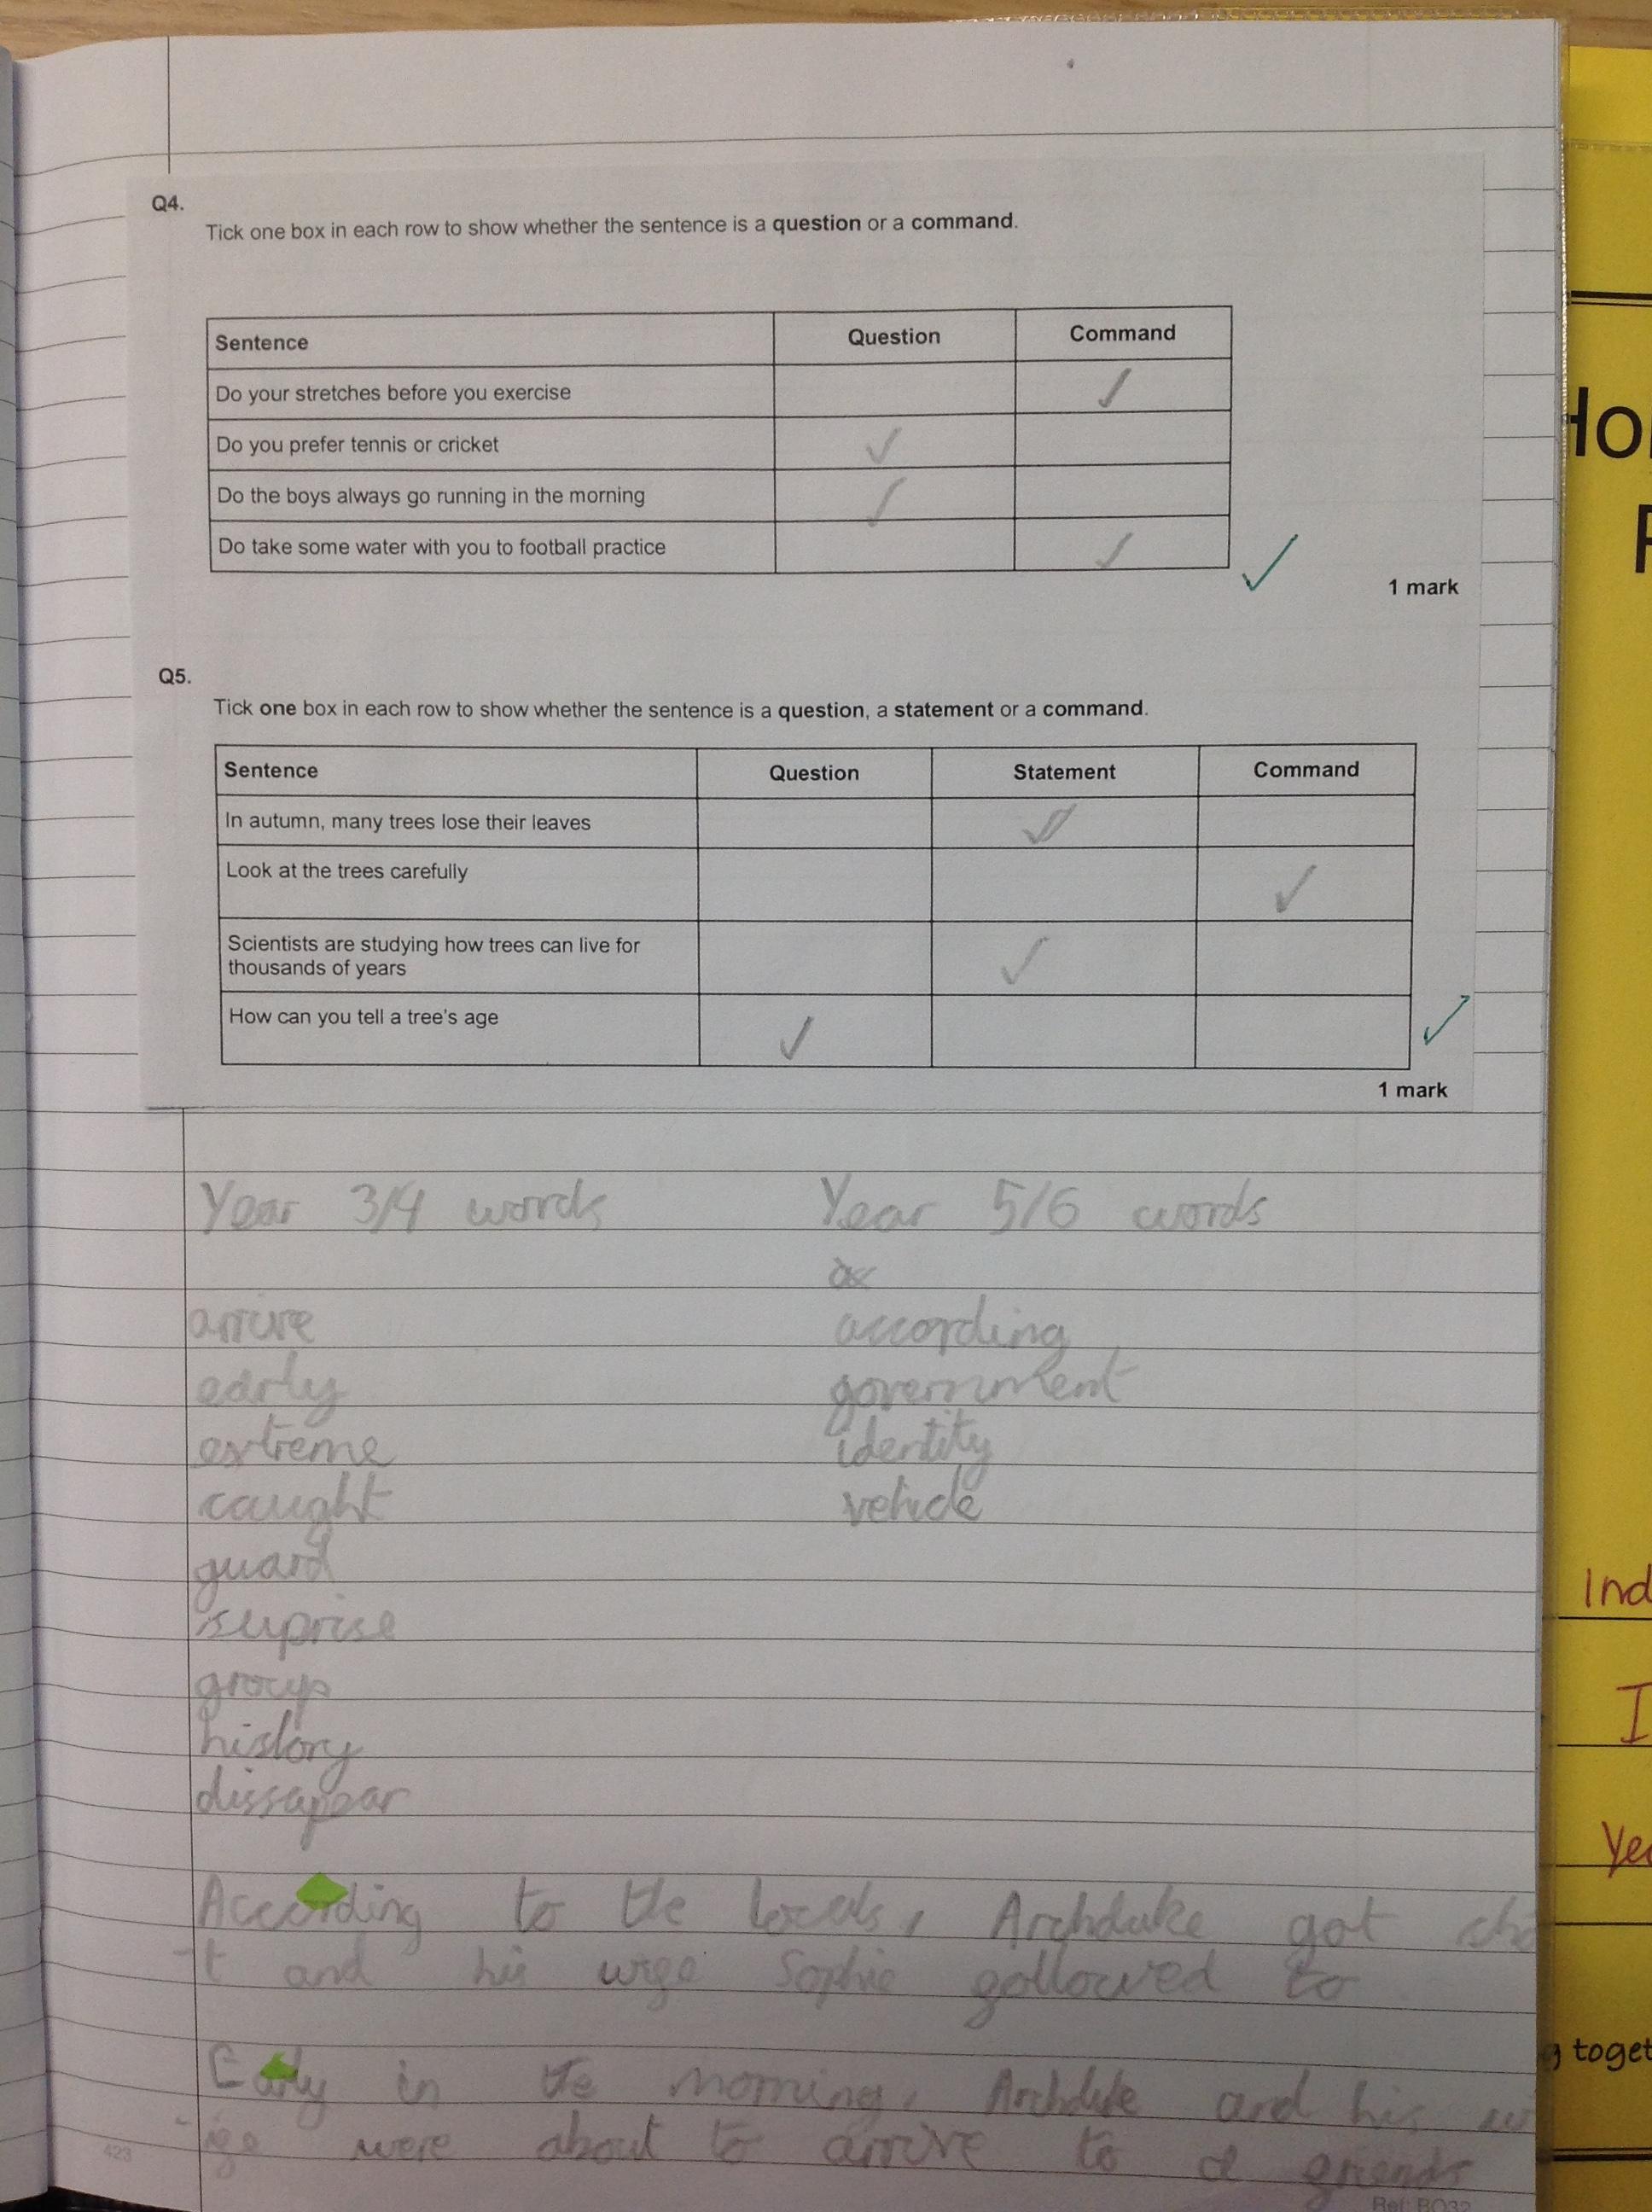 Q4.
Tick one box in each row to show whether the sentence is a question or a command.
Sentence Question Command
Do your stretches before you exercise ✓
Do you prefer tennis or cricket ✓
Do the boys always go running in the morning ✓
Do take some water with you to football practice ✓
1 mark
Q5.
Tick one box in each row to show whether the sentence is a question, a statement or a command.
Sentence Question Statement Command
In autumn, many trees lose their leaves ✓
Look at the trees carefully ✓
Scientists are studying how trees can live for
thousands of years ✓
How can you tell a tree's age ✓
1 mark
Year 3/4 words Year 5/6 words
arrive according
early government
extreme identity
caught vehicle
guard
suprise
group
history
dissapear
According to the locals, Archduke got sho
-t and his wife Sophie followed to
Early in the morning, Archduke and his w
-ife were about to arrive to a friends
423
Ref: BO32
Ho
Ind
I
Ye
g toget